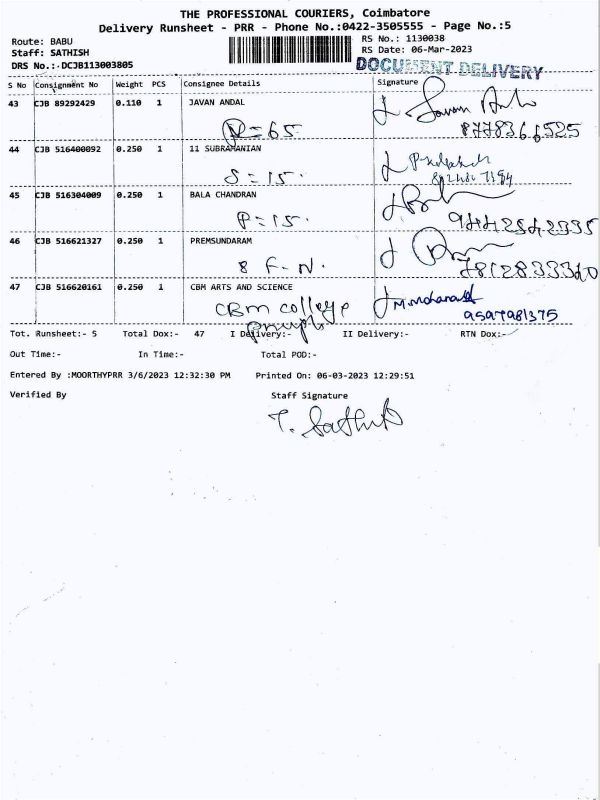 THE PROFESSIONAL COURIERS, Coimbatore
Delivery Runsheet - PRR - Phone No.:0422-3505555 - Page No.:5
Route: BABU
Staff: SATHISH
DRS No.:-DCJB113003805
RS No.: 1130038
RS Date: 06-Mar-2023
DOCUMENT DELIVERY
S No Consignment No Weight PCS Consignee Details Signature
43 CJB 89292429 0.110 1 JAVAN ANDAL
P=65
8778366525
44 CJB 516400092 0.250 1 11 SUBRAMANIAN
S=15.
45 CJB 516304009 0.250 1 BALA CHANDRAN
P=15.
9442542335
46 CJB 516621327 0.250 1 PREMSUNDARAM
8 F.N.
47 CJB 516620161 0.250 1 CBM ARTS AND SCIENCE
CBM college
Tot. Runsheet:- 5 Total Dox:- 47 I Delivery:- II Delivery:- RTN Dox:-
Out Time:- In Time:- Total POD:-
Entered By :MOORTHYPRR 3/6/2023 12:32:30 PM Printed On: 06-03-2023 12:29:51
Verified By Staff Signature